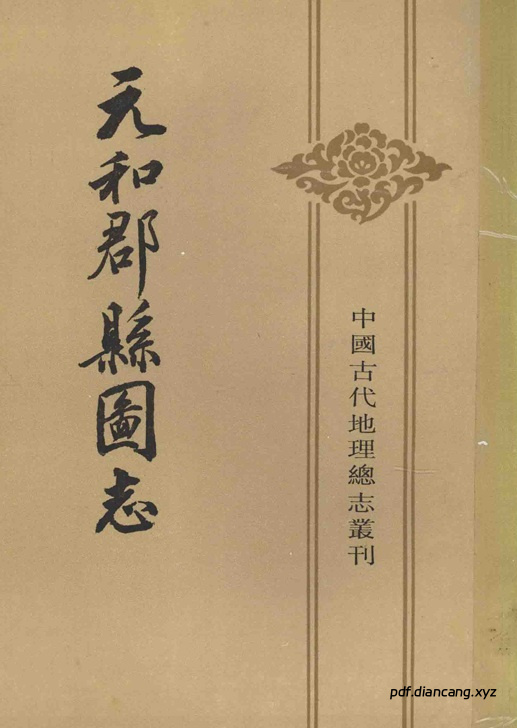 中國古代地理總志叢刊
元和郡縣圖志
pdf.diancang.xyz